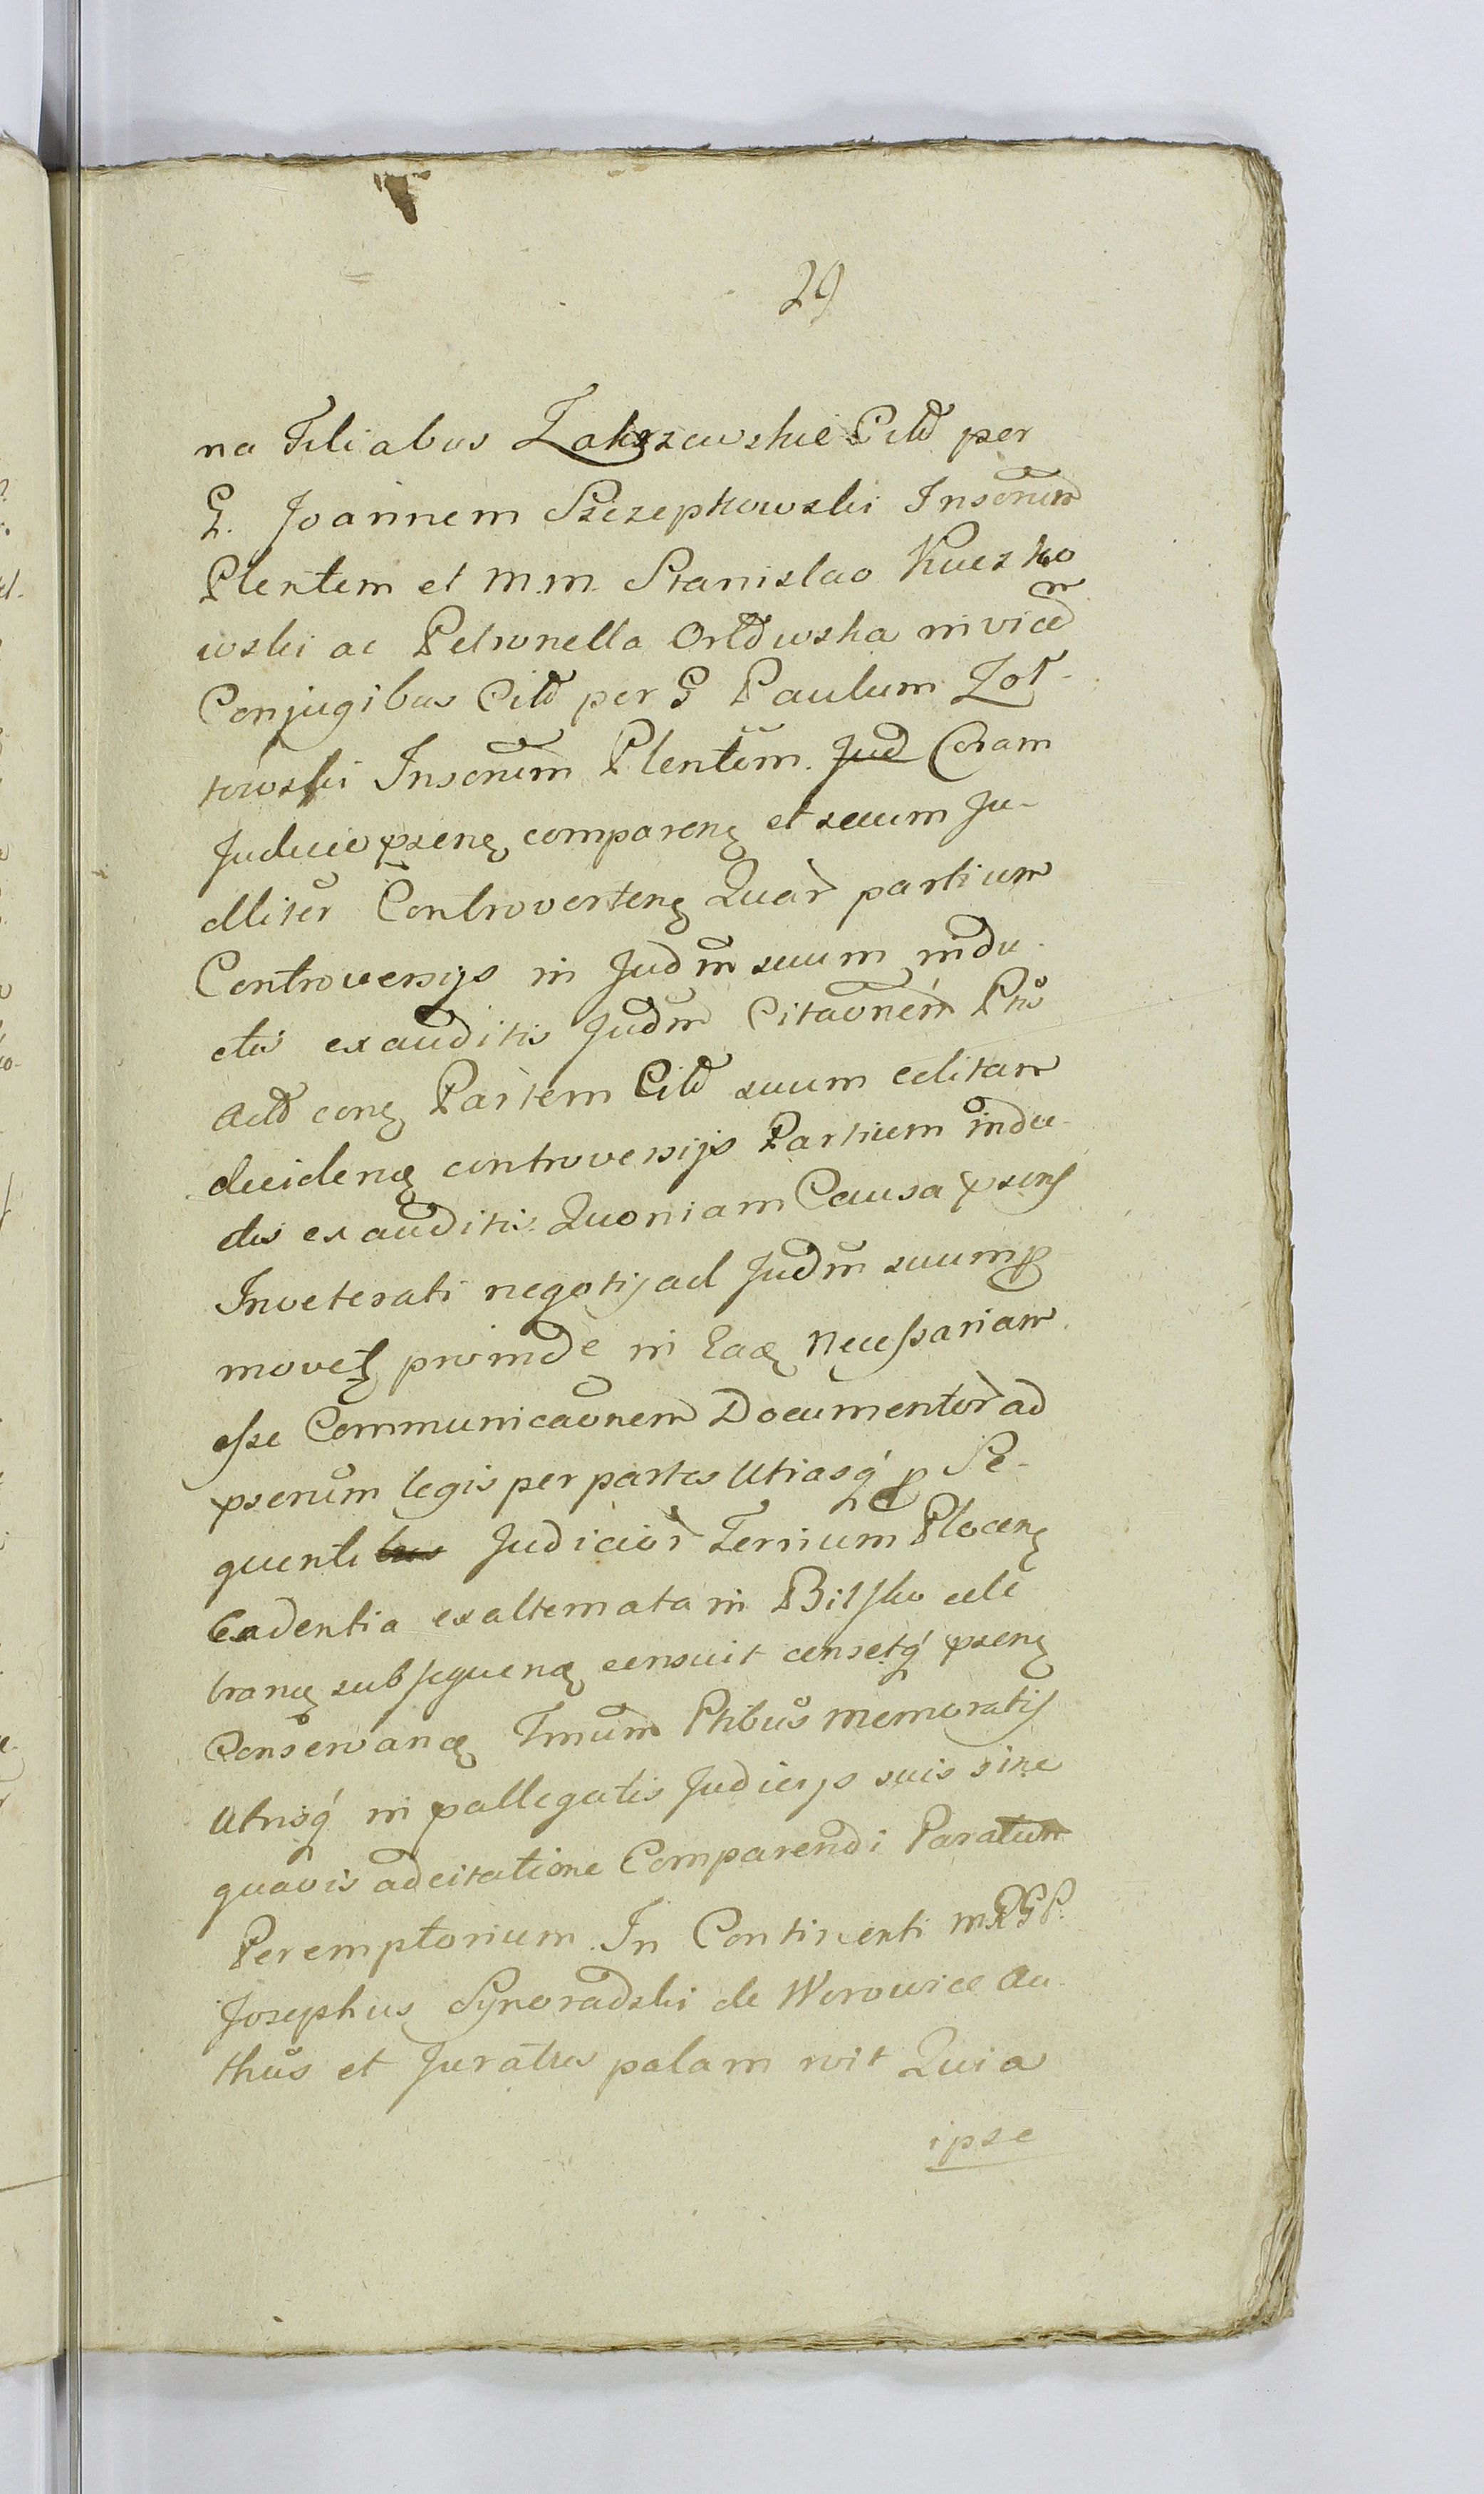 29
na Filiabus Zakrzewskie Citã per
G. Joannem Szczepkowski Insõnem
Plentem et M.M. Stanislao Kuczko
wski ac Petronella Orłowska invicẽ
Conjugibus Citã per G Paulum Zoł-
towski Insõnem Plentẽm. Jud Coram
Judicio pseñ compareñ et secum Ju-
dliter Controverteñ Quar̃ partium
Controversijs in Judm̃ suum indu-
ctis exauditis Judm̃ Citaõnem Ptis
Actã coñ Partem Citã suum editam
decideñ controversijs Partium indu-
ctis exauditis. Quoniam Causa psens
Inveterati negotij ad Judm̃ suum p
movet proinde in Ea necessariam
esse Communicaõnem Documentor̃ ad
pserũm legis per partes Utrasq́ p Se-
quenti Judicior̃ Terrium Ploceñ
Cadentia exaltemata in Bilsko cele
brañ subsequeñ censuit censetq́ pseñ
Conservañ Tmum Ptibus memoratis
Utrisq́ in pallegatis Judicijs suis sine
quavis adcitatione Comparendi Paratum
Peremptorium. In Continenti MRGP.
Josephus Synoradzki de Worowice Au-
thus et Juratus palam rvit Quia
ipse